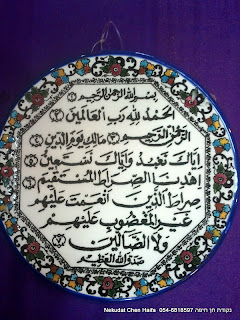 بِسْمِ اللهِ الرَّحْمٰنِ الرَّحِيْمِ ١
اَلْحَمْدُ لِلّٰهِ رَبِّ الْعَالَمِيْنَ ٢
اَلرَّحْمٰنِ الرَّحِيْمِ ٣ مَالِكِ يَوْمِ الدِّيْنِ ٤
اِيَّاكَ نَعْبُدُ وَاِيَّاكَ نَسْتَعِيْنُ ٥
اِهْدِنَا الصِّرَاطَ الْمُسْتَقِيْمَ ٦
صِرَاطَ الَّذِيْنَ اَنْعَمْتَ عَلَيْهِمْ
غَيْرِ الْمَغْضُوْبِ عَلَيْهِمْ
وَلَا الضَّالِّيْنَ ٧
صَدَقَ اللهُ الْعَظِيْمُ
Nekudat Chen Haifa 054-6818597 נקודת חן חיפה